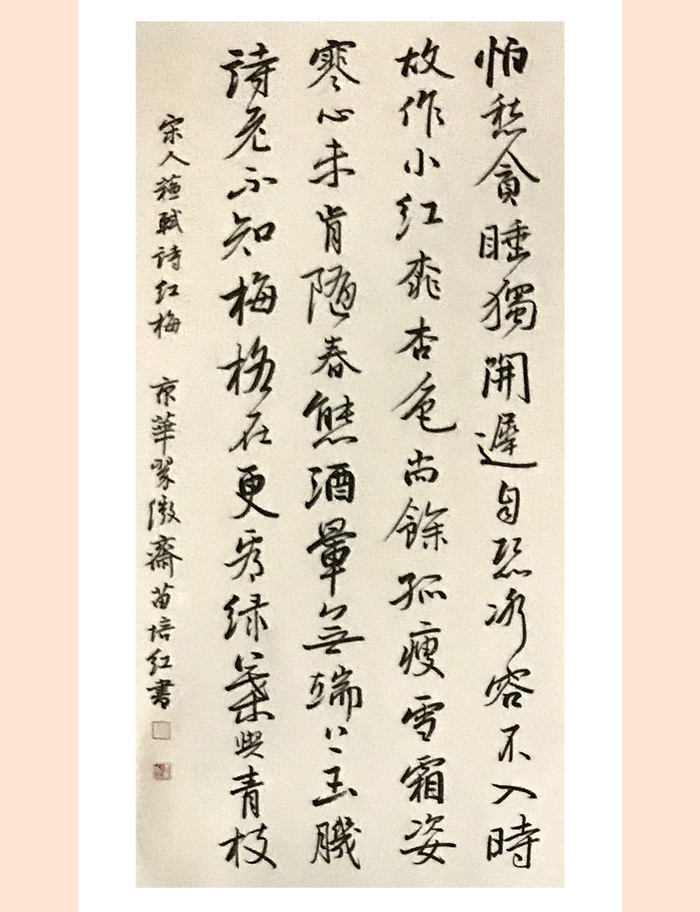 怕愁貪睡獨開遲自恐冰容不入時
故作小红桃杏色尚餘孤瘦雪霜姿
寒心未肯随春態酒暈無端上玉肌
詩老不知梅格在更看绿葉與青枝
宋人蘇軾詩红梅 京華翠微齋苗培红書